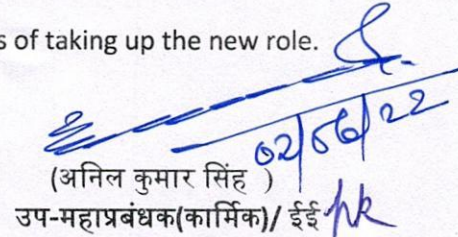 s of taking up the new role.
02/06/22
(अनिल कुमार सिंह )
उप-महाप्रबंधक(कार्मिक)/ ईई